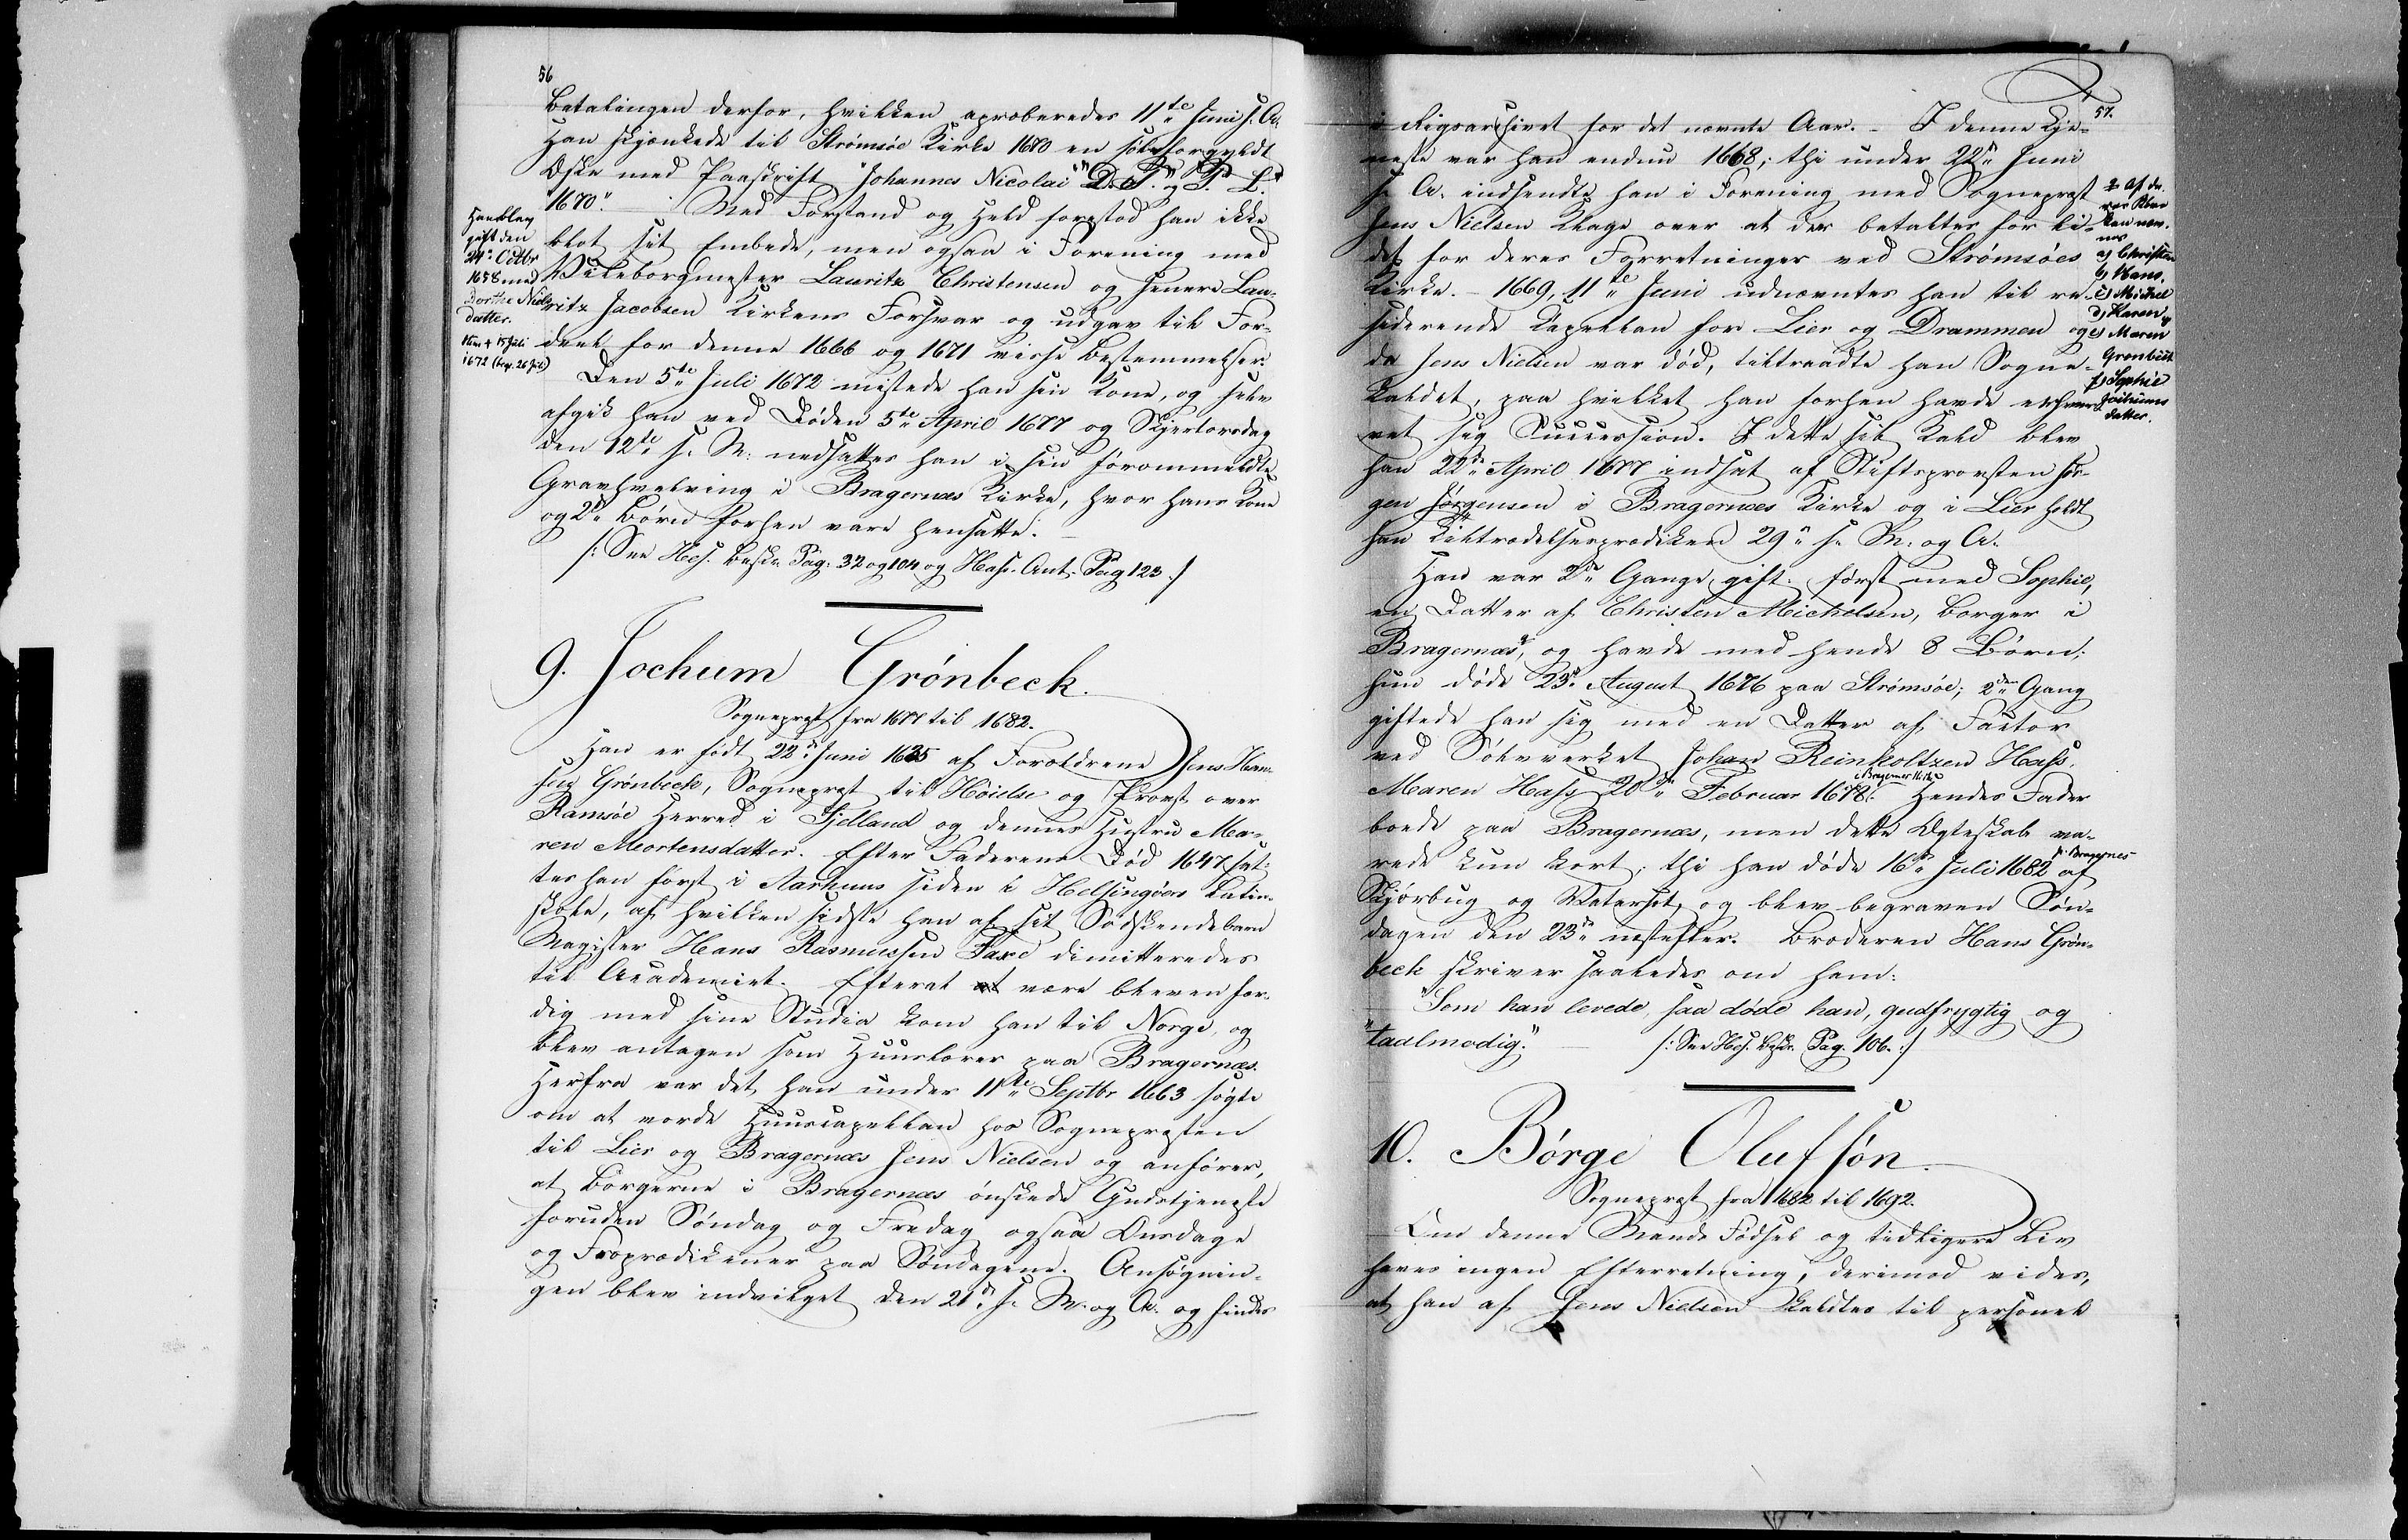 56
Betalingen derfor, hvilken aproberedes 11te Juni s. A.
Han skjænkede til Strømsøe Kirke 1670 en sølvforgyldt
Æske med Paaskrift "Johannes Nicolai D. S. P. L.
1670." Med Forstand og Held forestod han ikke
blot sit Embede, men ogsaa i Forening med
Viceborgmester Lauritz Christensen og senere Lau-
ritz Jacobsen Kirkens Forsvar og udgav til For-
deel for denne 1666 og 1671 visse Bestemmelser.
Den 5te Juli 1672 mistede han sin Kone, og selv
afgik han ved Døden 5te April 1677 og Skjertorsdag
den 12te s. M. nedsattes han i sin førommeldte
Gravhvelving i Bragernæs Kirke, hvor hans Kone
og 2de Børn forhen vare hensatte.
/: See Hes. Beskr. Pag. 32 og 104 og Hass. Ant. Pag 123 :/
Han blev
gift den
24 Octbr
1658 med
Dorthe Niels
datter.
Hun + 15 Juli
1672 (beg. 26 Juli)
9. Jochum Grønbeck.
Sognepræst fra 1677 til 1682.
Han er født 22de Juni 1635 af Forældrene Jens Han-
sen Grønbeck, Sognepræst til Høielse og Provst over
Ramsøe Herred i Sjelland og dennes Hustru Ma-
ren Mortensdatter. Efter Faderens Død 1647 sat-
tes han først i Aarhuus siden i Helsingøers Latin-
skole, af hvilken sidste han af sit Sødskendebarn
Magister Hans Rasmussen Faxe dimitteredes
til Academiet. Efterat at være bleven fær-
dig med sine Studia kom han til Norge, og
blev antagen som Huuslærer paa Bragernæs.
Herfra var det, han under 11te Septbr 1663 søgte
om at vorde Huuscapellan hos Sognepræsten
til Lier og Bragernæs Jens Nielsen og anfører,
at Borgerne i Bragernæs ønskede Gudstjeneste
foruden Søndag og Fredag ogsaa Onsdage
og Froprædikener paa Søndagene. Ansøgnin-
gen blev indvilget den 21de s. M. og A. og findes
57.
i Rigsarchivet for det nævnte Aar. – I denne Tje-
neste var han endnu 1668; thi under 22de Juni
s. A. indsendte han i Forening med Sognepræst
Jens Nielsen Klage over at der betaltes for li-
det for deres Forretninger ved Strømsøes
Kirke. – 1669, 11te Juni udnævntes han til re-
siderende Capellan for Lier og Drammen og
da Jens Nielsen var død, tiltraadte han Sogne-
kaldet, paa hvilket han forhen havde erhver-
vet sig Succession. I dette sit Kald blev
han 22de April 1677 indsat af Stiftsprovsten Jør-
gen Jørgensen i Bragernæs Kirke og i Lier holdt
han Tiltrædelsesprædiken 29de s. M. og A.
Han var 2de Gange gift. først med Sophie,
en Datter af Christen Michelsen, Borger i
Bragernæs, og havde med hende 8 Børn;
hun døde 23de August 1676 paa Strømsøe; 2den Gang
giftede han sig med en Datter af Factor
ved Sølvverket Johan Reinholtzen Hass.
Maren Hass 20de Februar 1678 i Bragernes Kirke. Hendes Fader
boede paa Bragernæs, men dette Ægteskab va-
rede kun kort; thi han døde 16de Juli 1682 p. Bragernes af
Skjørbug og Vatersot, og blev begraven Søn-
dagen den 23de næstefter. Broderen Hans Grøn-
beck skriver saaledes om ham:
"Som han levede, saa døde han, gudfrygtig og
"taalmodig." /: See Hes. Beskr. Pag. 106. :/
af de-
res Børn
kan næv-
nes
a) Christen
b) Hans
c) Michel
d) Karen og
e) Maren
Grønbeck
f) Sophie
Jochums
datter.
10. Børge Olufsøn.
Sognepræst fra 1682 til 1692.
Om denne Mands Fødsel og tidligere Liv
haves ingen Efterretning, derimod vides,
at han af Jens Nielsen kaldtes til personel